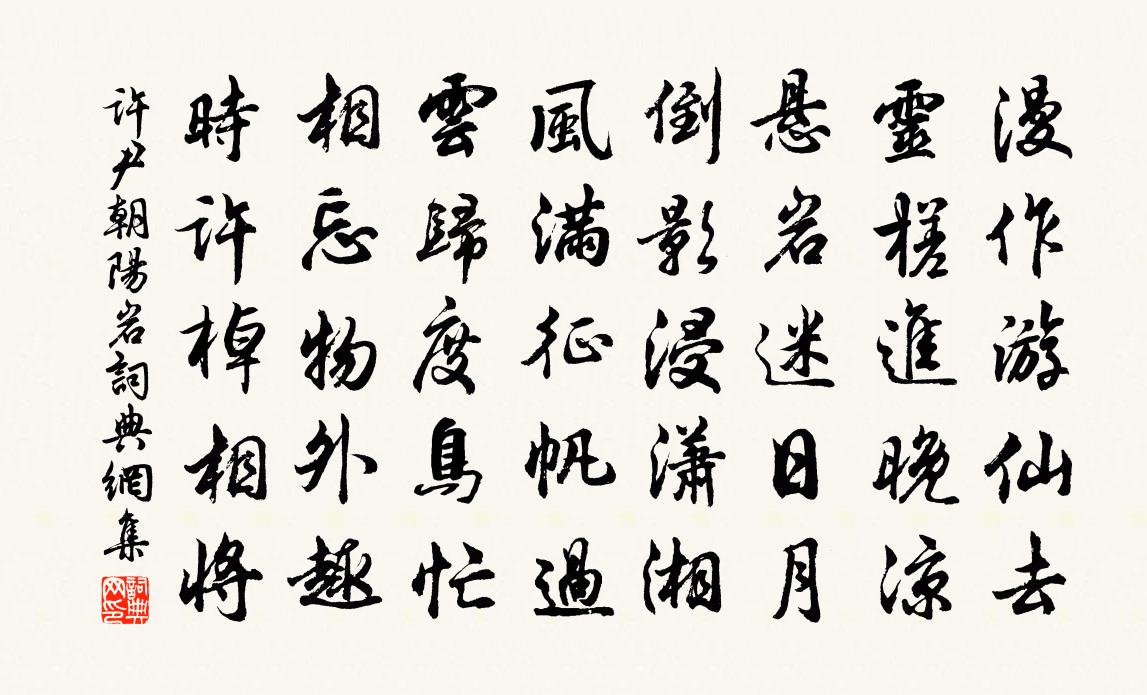 漫作游仙去
靈槎進晚涼
悬岩迷日月
倒影浸瀟湘
風滿征帆過
雲歸度鳥忙
相忘物外趣
時許棹相將
許尹朝陽岩詞典網集
詞典网印